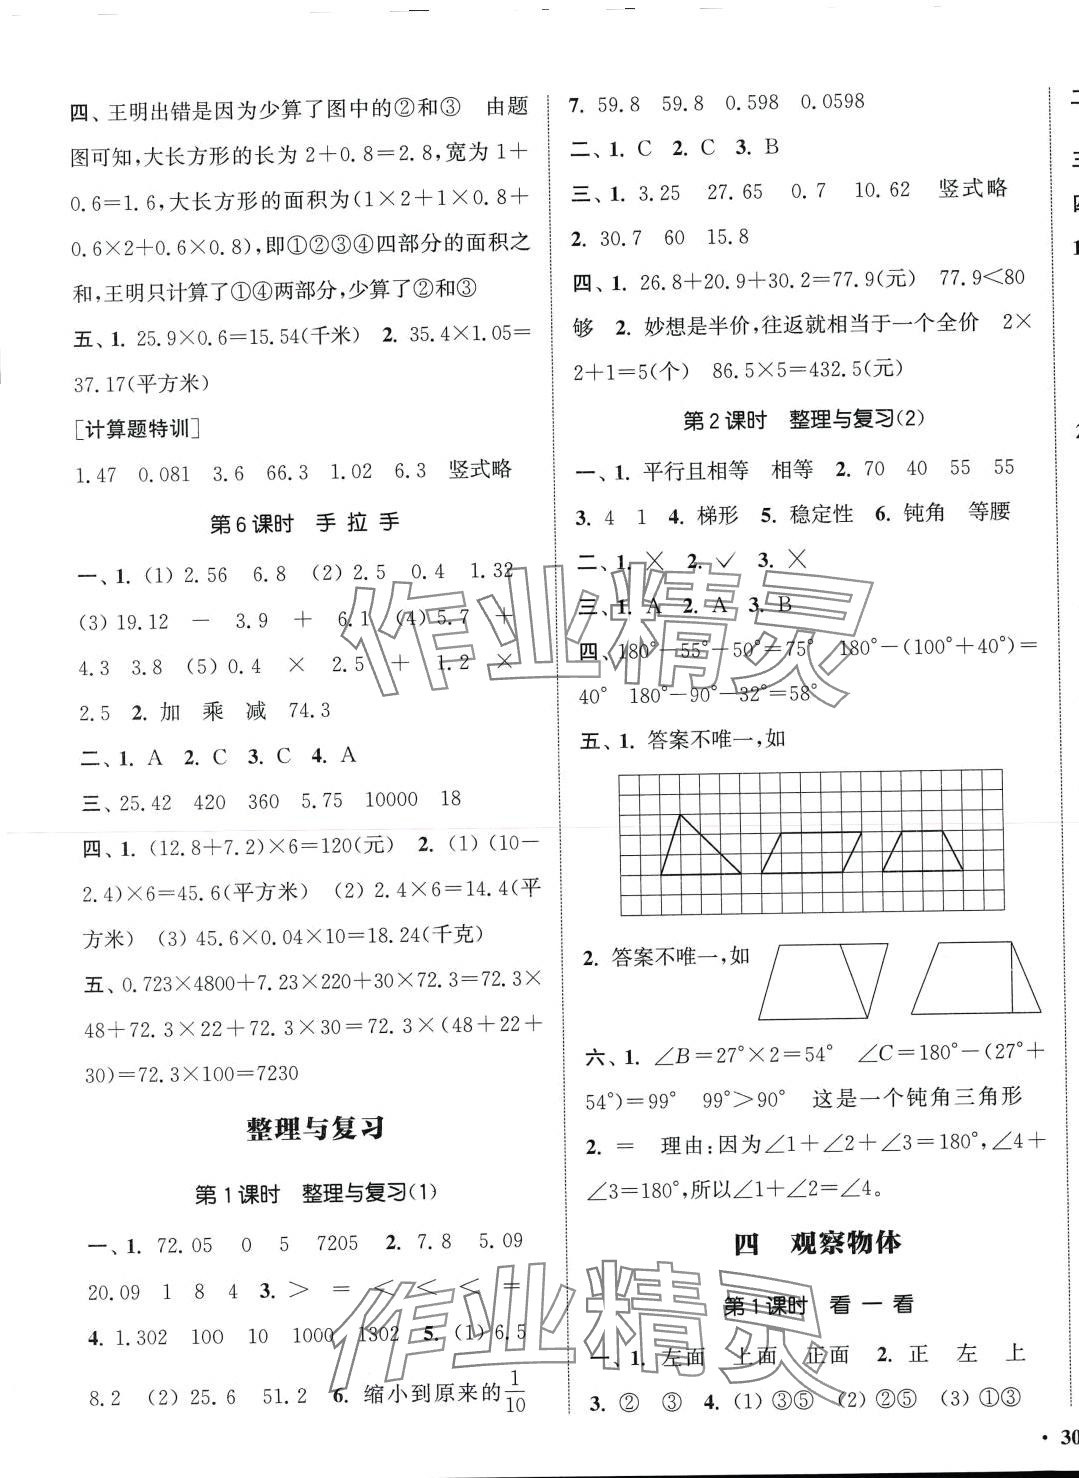 四、王明出错是因为少算了图中的②和③　由题
图可知,大长方形的长为 2+0.8=2.8,宽为 1+
0.6=1.6,大长方形的面积为(1×2+1×0.8+
0.6×2+0.6×0.8),即①②③④四部分的面积之
和,王明只计算了①④两部分,少算了②和③
五、1. 25.9×0.6=15.54(千米)　2. 35.4×1.05=
37.17(平方米)
[计算题特训]
1.47　0.081　3.6　66.3　1.02　6.3　竖式略
第 6 课时　手 拉 手
一、1. (1) 2.56　6.8　(2) 2.5　0.4　1.32
(3) 19.12　－　3.9　＋　6.1　(4) 5.7　＋
4.3　3.8　(5) 0.4　×　2.5　＋　1.2　×
2.5　2. 加　乘　减　74.3
二、1. A　2. C　3. C　4. A
三、25.42　420　360　5.75　10000　18
四、1. (12.8+7.2)×6=120(元)　2. (1) (10－
2.4)×6=45.6(平方米)　(2) 2.4×6=14.4(平
方米)　(3) 45.6×0.04×10=18.24(千克)
五、0.723×4800+7.23×220+30×72.3=72.3×
48+72.3×22+72.3×30=72.3×(48+22+
30)=72.3×100=7230
整理与复习
第 1 课时　整理与复习(1)
一、1. 72.05　0　5　7205　2. 7.8　5.09
20.09　1　8　4　3. ＞　＝　＜　＜　＜　＝
4. 1.302　100　10　1000　1302　5. (1) 6.5
8.2　(2) 25.6　51.2　6. 缩小到原来的 1/10
7. 59.8　59.8　0.598　0.0598
二、1. C　2. C　3. B
三、1. 3.25　27.65　0.7　10.62　竖式略
2. 30.7　60　15.8
四、1. 26.8+20.9+30.2=77.9(元)　77.9＜80
够　2. 妙想是半价,往返就相当于一个全价　2×
2+1=5(个)　86.5×5=432.5(元)
第 2 课时　整理与复习(2)
一、1. 平行且相等　相等　2. 70　40　55　55
3. 4　1　4. 梯形　5. 稳定性　6. 钝角　等腰
二、1. ×　2. ✓　3. ×
三、1. A　2. A　3. B
四、180°－55°－50°=75°　180°－(100°+40°)=
40°　180°－90°－32°=58°
五、1. 答案不唯一,如
2. 答案不唯一,如
六、1. ∠B=27°×2=54°　∠C=180°－(27°+
54°)=99°　99°＞90°　这是一个钝角三角形
2. ＝　理由:因为∠1+∠2+∠3=180°,∠4+
∠3=180°,所以∠1+∠2=∠4。
四　观察物体
第 1 课时　看 一 看
一、1. 左面　上面　正面　2. 正　左　上
3. ②　③　4. (1) ③⑤　(2) ②⑤　(3) ①③
• 30
作业精灵
作业精灵